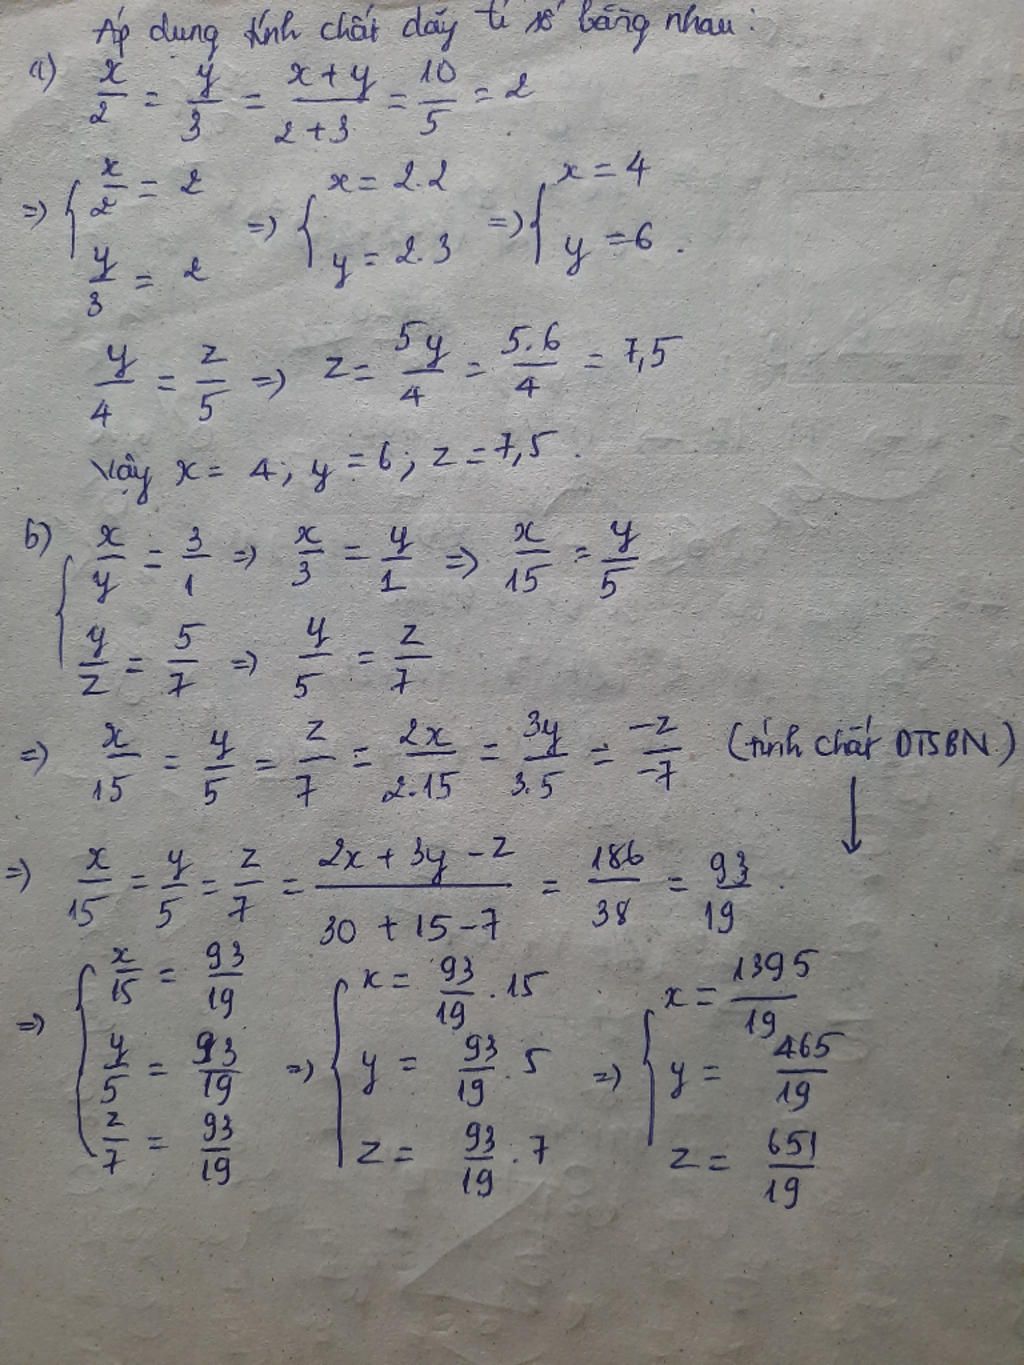 Áp dụng tính chất dãy tỉ số bằng nhau:
a) x/2 = y/3 = (x+y)/(2+3) = 10/5 = 2
=> { x/2 = 2 ; y/3 = 2 => { x = 2.2 ; y = 2.3 => { x = 4 ; y = 6 .
y/4 = z/5 => z = 5y/4 = 5.6/4 = 7,5
Vậy x = 4; y = 6; z = 7,5 .
b) { x/y = 3/1 => x/3 = y/1 => x/15 = y/5
y/z = 5/7 => y/5 = z/7
=> x/15 = y/5 = z/7 = 2x/2.15 = 3y/3.5 = -z/-7 (tính chất DTSBN)
↓
=> x/15 = y/5 = z/7 = (2x + 3y - z)/(30 + 15 - 7) = 186/38 = 93/19 .
=> { x/15 = 93/19 ; y/5 = 93/19 ; z/7 = 93/19 => { x = 93/19 . 15 ; y = 93/19 . 5 ; z = 93/19 . 7 => { x = 1395/19 ; y = 465/19 ; z = 651/19